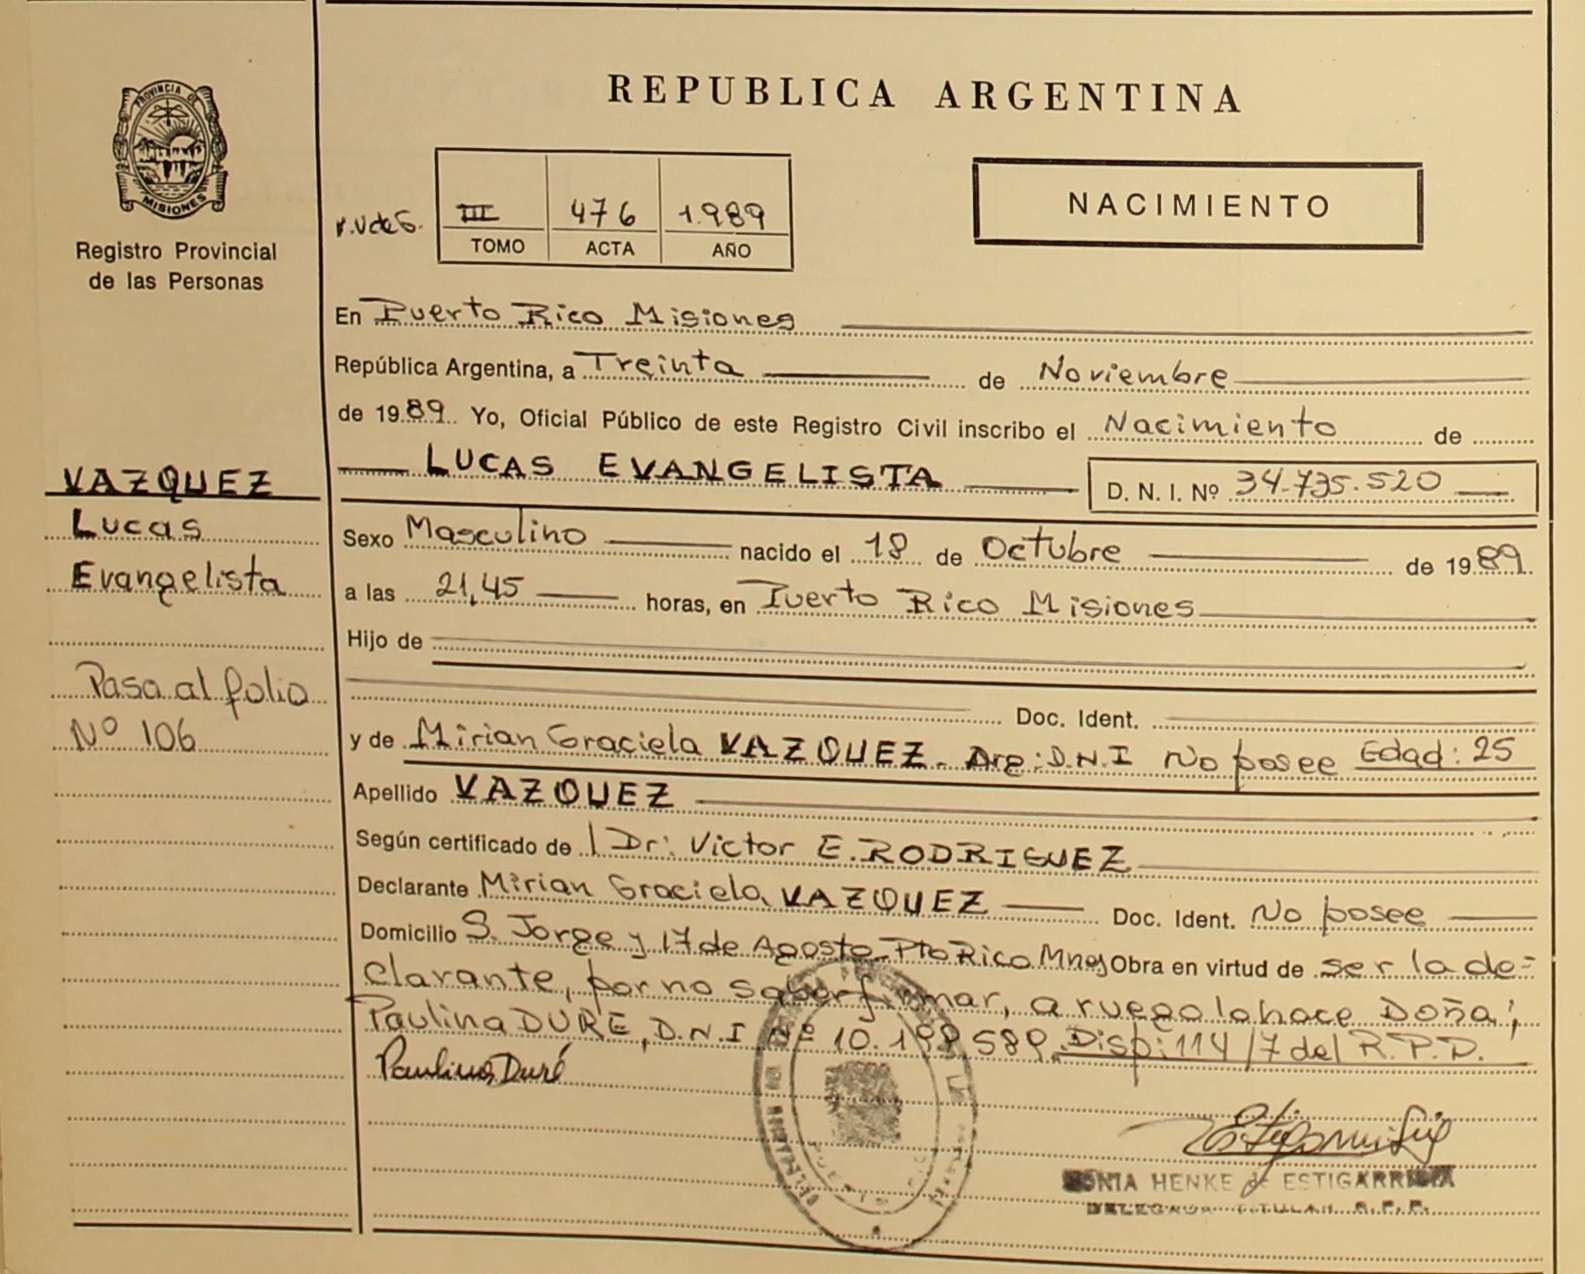 REPUBLICA ARGENTINA
PROVINCIA DE
MISIONES
Registro Provincial
de las Personas
III 476 1.989
TOMO ACTA AÑO
NACIMIENTO
En Puerto Rico Misiones
República Argentina, a Treinta de Noviembre
de 1989 Yo, Oficial Público de este Registro Civil inscribo el Nacimiento de
LUCAS EVANGELISTA D. N. I. Nº 34.735.520
VAZQUEZ
Lucas
Evangelista
Pasa al folio
Nº 106
Sexo Masculino nacido el 18 de Octubre de 1989
a las 21,45 horas, en Puerto Rico Misiones
Hijo de
Doc. Ident.
y de Mirian Graciela VAZQUEZ. Arg: D.N.I No posee Edad: 25
Apellido VAZQUEZ
Según certificado de l Dr: Victor E. RODRIGUEZ
Declarante Mirian Graciela VAZQUEZ Doc. Ident. No posee
Domicilio S. Jorge y 17 de Agosto-Pto Rico Mnes Obra en virtud de ser la de=
clarante, por no saber firmar, a ruego lo hace Doña;
Paulina DURE, D.N.I Nº 10.198.589. Disp: 114/7 del R.P.D.
Paulina Duré
SONIA HENKE de ESTIGARRIBIA
DELEGADA TITULAR R.P.P.